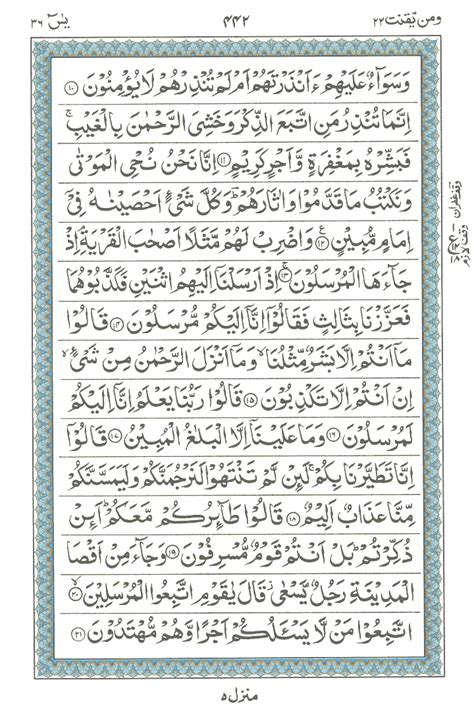 ومن یقنت ۲۲
۴۴۲
یٰسٓ ۳۶
وَسَوَآءٌ عَلَیْهِمْ ءَاَنْذَرْتَهُمْ اَمْ لَمْ تُنْذِرْهُمْ لَا یُؤْمِنُوْنَ ۱۰
اِنَّمَا تُنْذِرُ مَنِ اتَّبَعَ الذِّكْرَ وَخَشِیَ الرَّحْمٰنَ بِالْغَیْبِ ۚ
فَبَشِّرْهُ بِمَغْفِرَةٍ وَّاَجْرٍ كَرِیْمٍ ۱۱ اِنَّا نَحْنُ نُحْیِ الْمَوْتٰی
وَنَكْتُبُ مَا قَدَّمُوْا وَاٰثَارَهُمْ ؕ وَكُلَّ شَیْءٍ اَحْصَیْنٰهُ فِیْۤ
اِمَامٍ مُّبِیْنٍ ۱۲ ع وَاضْرِبْ لَهُمْ مَّثَلًا اَصْحٰبَ الْقَرْیَةِ ۘ اِذْ
جَآءَهَا الْمُرْسَلُوْنَ ۱۳ اِذْ اَرْسَلْنَاۤ اِلَیْهِمُ اثْنَیْنِ فَكَذَّبُوْهُمَا
فَعَزَّزْنَا بِثَالِثٍ فَقَالُوْۤا اِنَّاۤ اِلَیْكُمْ مُّرْسَلُوْنَ ۱۴ قَالُوْا
مَاۤ اَنْتُمْ اِلَّا بَشَرٌ مِّثْلُنَا ۙ وَمَاۤ اَنْزَلَ الرَّحْمٰنُ مِنْ شَیْءٍ ۙ
اِنْ اَنْتُمْ اِلَّا تَكْذِبُوْنَ ۱۵ قَالُوْا رَبُّنَا یَعْلَمُ اِنَّاۤ اِلَیْكُمْ
لَمُرْسَلُوْنَ ۱۶ وَمَا عَلَیْنَاۤ اِلَّا الْبَلٰغُ الْمُبِیْنُ ۱۷ قَالُوْۤا
اِنَّا تَطَیَّرْنَا بِكُمْ ۚ لَئِنْ لَّمْ تَنْتَهُوْا لَنَرْجُمَنَّكُمْ وَلَیَمَسَّنَّكُمْ
مِّنَّا عَذَابٌ اَلِیْمٌ ۱۸ قَالُوْا طَآئِرُكُمْ مَّعَكُمْ ؕ اَئِنْ
ذُكِّرْتُمْ ؕ بَلْ اَنْتُمْ قَوْمٌ مُّسْرِفُوْنَ ۱۹ وَجَآءَ مِنْ اَقْصَا
الْمَدِیْنَةِ رَجُلٌ یَّسْعٰی ز قَالَ یٰقَوْمِ اتَّبِعُوا الْمُرْسَلِیْنَ ۲۰ ۙ
اتَّبِعُوْا مَنْ لَّا یَسْئَلُكُمْ اَجْرًا وَّهُمْ مُّهْتَدُوْنَ ۲۱
وقف غفران
وقف لازم
منزل ۵